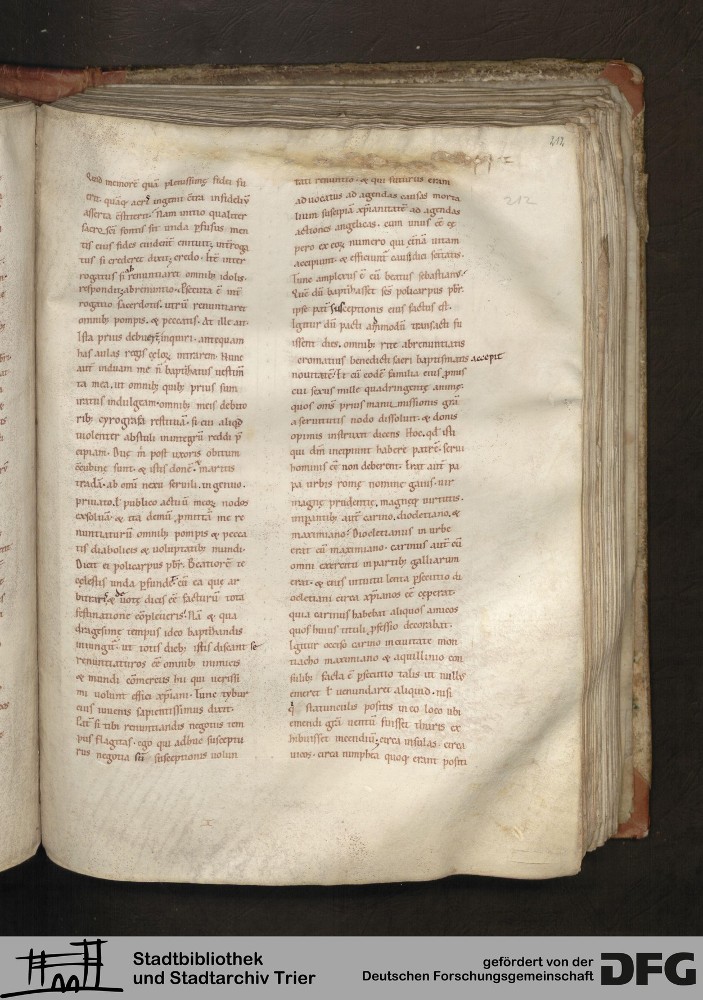 212
212
memorē quā plenissimę fidei fu
asserta
sacrę sēi fontis sit unda pfusus men
tis eius fides
tus si crederet dixit credo
rogatus si renuntiaret omnibꝫ idolis.
respondit abrenuntio.
rogatio sacerdotis. utrū renuntiaret
omnibꝫ pompis. & peccatis. At ille ait.
Ista prius inquiri. antequam
has aulas regis cęloꝝ intrarem. Nunc
aut induam me n̄ baptizatus uestim̄
ta mea. ut omnibꝫ quibꝫ prius sum
iratus indulgeam. omnibꝫ meis debito
ribꝫ cyrografa restituā. si cui aliqd
uiolenter abstuli reddi
cipiam. Duę m̄ post uxoris obitum
c̄cubinę sunt. & istis
tradā. ab omi nexu seruili. ingenuo.
priuato. l publico actuū meoꝝ nodos
exsoluā. & ita demū pmittā me re
nuntiaturū omnibꝫ pompis & pecca
tis diabolicis & uoluptatibꝫ mundi.
Dicit ei policarpus pbr.
cęlestis unda
dicis eē facturū tota
festinatione
dragesimę tempus ideo baptizandis
iniungit. ut totis diebꝫ istis discant se
renuntiaturos eē omnibꝫ inimicis
& mundi cōmerciis hii qui uerissi
mi uolunt effici xp̄iani. Tunc tybur
cius iuuenis sapientissimus dixit.
Sat si tibi renuntiandis negotiis tem
pus flagitas. ego qui adhuc susceptu
rus negotia sū susceptionis uolun
tati renuntio. & qui futurus eram
aduocatus ad agendas causas morta
lium suscepiā xp̄ianitatē ad agendas
actiones angelicas. cum unus ex
pero ex eoꝝ numero qui ętnā uitam
accepiunt. & efficiunt
Tunc amplexus ē eū beatus sebastianus.
Quē dū baptizasset sēs policarpus pbr.
ipse pat susceptionis eius factus est.
Igitur dū pacti transacti fu
issent dies. omnibꝫ rite abrenuntiatis
cromatius benedicti sacri baptismatis accepit
nouitatē. Et cū eodē familia eius pmus
cui sexus mille quadringentę animę.
quos oms prius manu missionis grā
a seruitutis nodo dissoluit. & donis
opimis instruxit dicens Hoc. qd isti
qui dm̄ incipiunt habere patrē. serui
hominis eē non deberent. Erat aut pa
pa urbis romę nomine gaius. uir
magnę prudentię. magnęq uirtutis.
Impantibꝫ aut carino. diocletiano. &
maximiano. Diocletianus in urbe
erat cū maximiano. carinus aut cū
omni exercitu in partibꝫ galliarum
erat. & eius intuitu lenta psecutio di
ocletiani circa xp̄ianos eē cęperat.
quia carinus habebat aliquos amicos
quos huius tituli pfessio decorabat.
Igitur occiso carino in ciuitate mon
tiacho maximiano & aquillinio con
sulibꝫ facta ē psecutio talis ut nullꝰ
emeret l uenundaret aliquid. nisi
q statunculis positis in eo loco ubi
emendi grā uentū fuisset thuris ex
hibuisset incendiū. circa insulas. circa
uicos. circa nimphea quoqꝫ erant positi
Stadtbibliothek
und Stadtarchiv Trier
gefördert von der
Deutschen Forschungsgemeinschaft
DFG